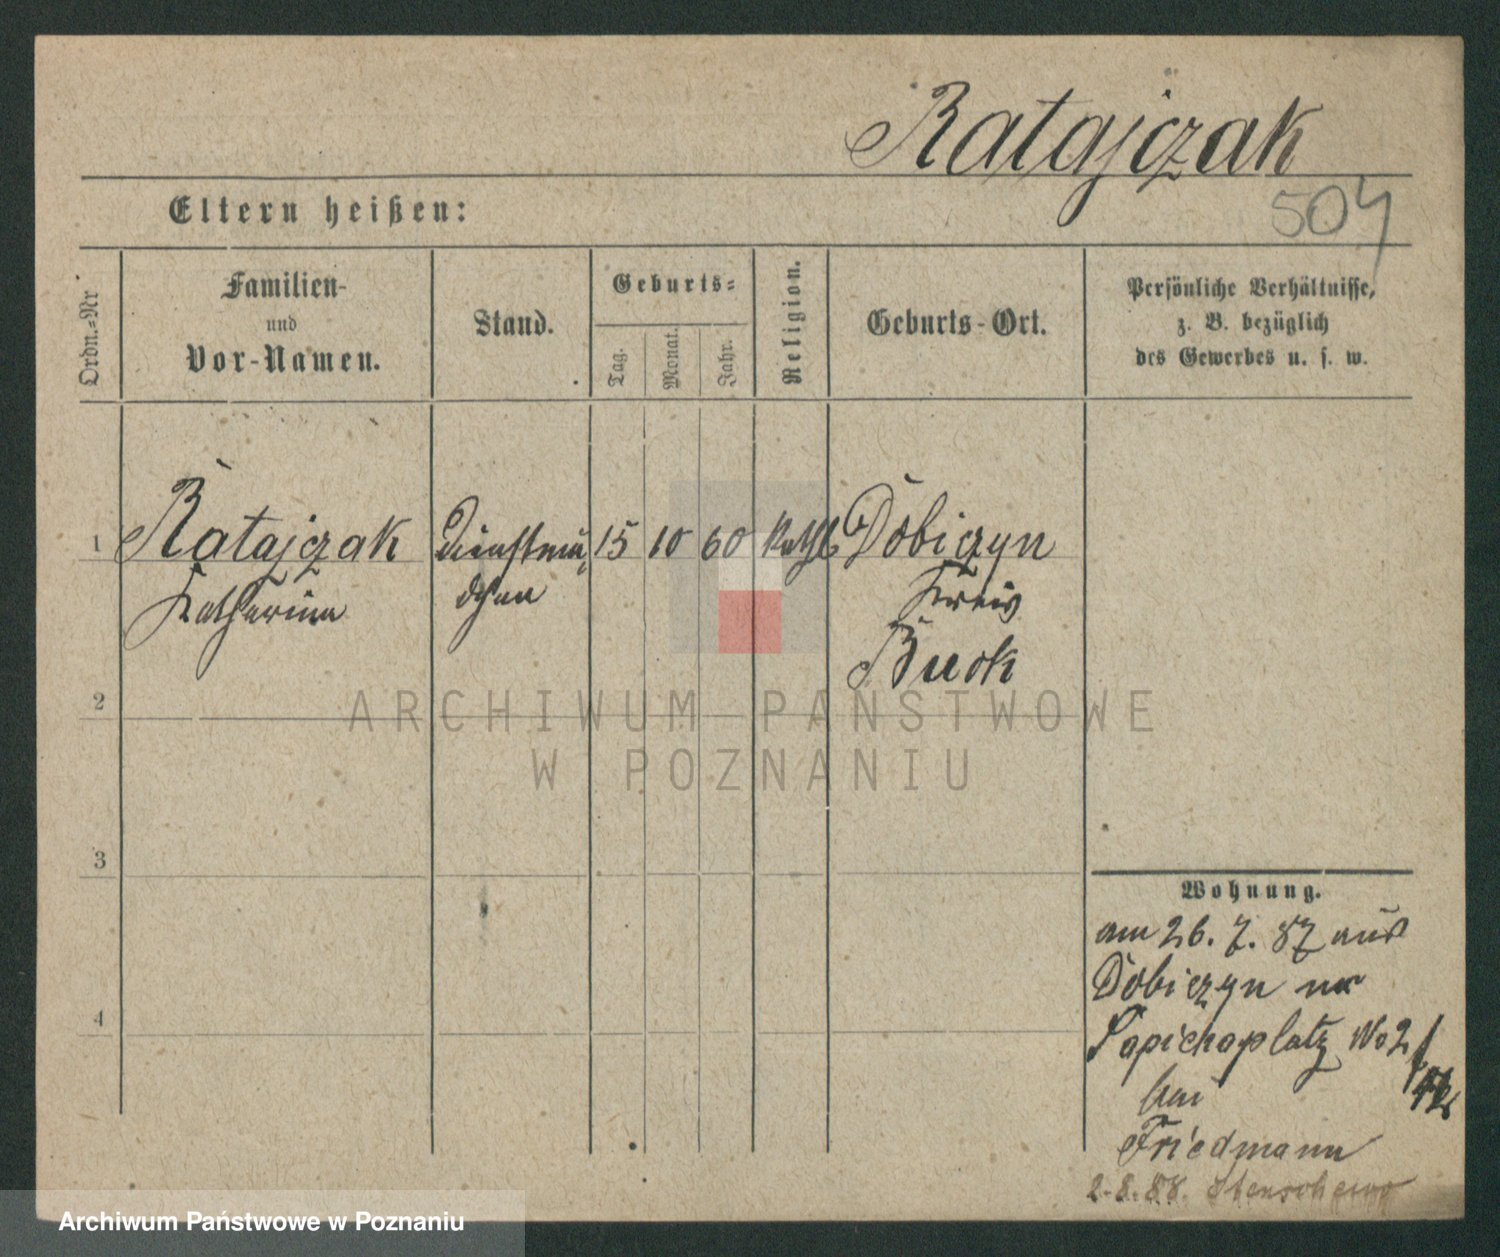 Ratajczak
Eltern heißen:
504
Ordn.=Nr
Familien-
und
Vor-Namen.
Stand.
Geburts=
Tag.
Monat.
Jahr.
Religion.
Geburts-Ort.
Persönliche Verhältnisse,
z. B. bezüglich
des Gewerbes u. s. w.
1 Ratajczak Dienstmä= 15 10 60 kath Dobiczyn
Katharina dchen Kreis
Buck
2
ARCHIWUM PAŃSTWOWE
W POZNANIU
3
Wohnung.
am 26. 7. 87 aus
Dobiczyn
4
Sapiehaplatz No 2
bei
Friedmann
2. 8. 88.
Archiwum Państwowe w Poznaniu